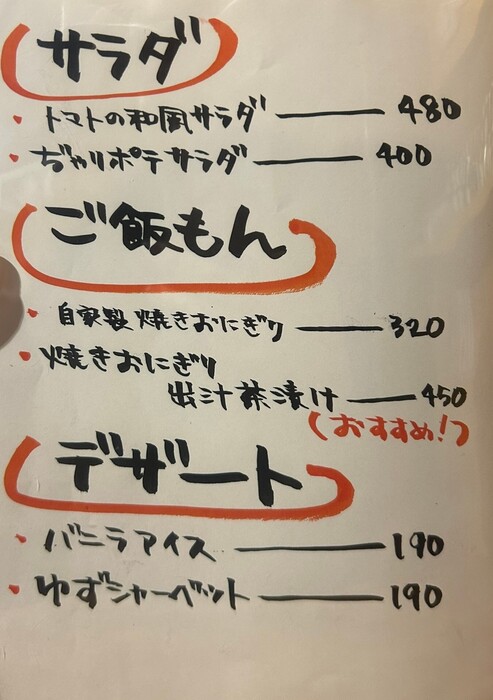 サラダ
トマトの和風サラダ 480
ぢゃりポテサラダ 400
ご飯もん
自家製焼きおにぎり 320
焼きおにぎり
出汁茶漬け 450
(おすすめ!)
デザート
バニラアイス 190
ゆずシャーベット 190